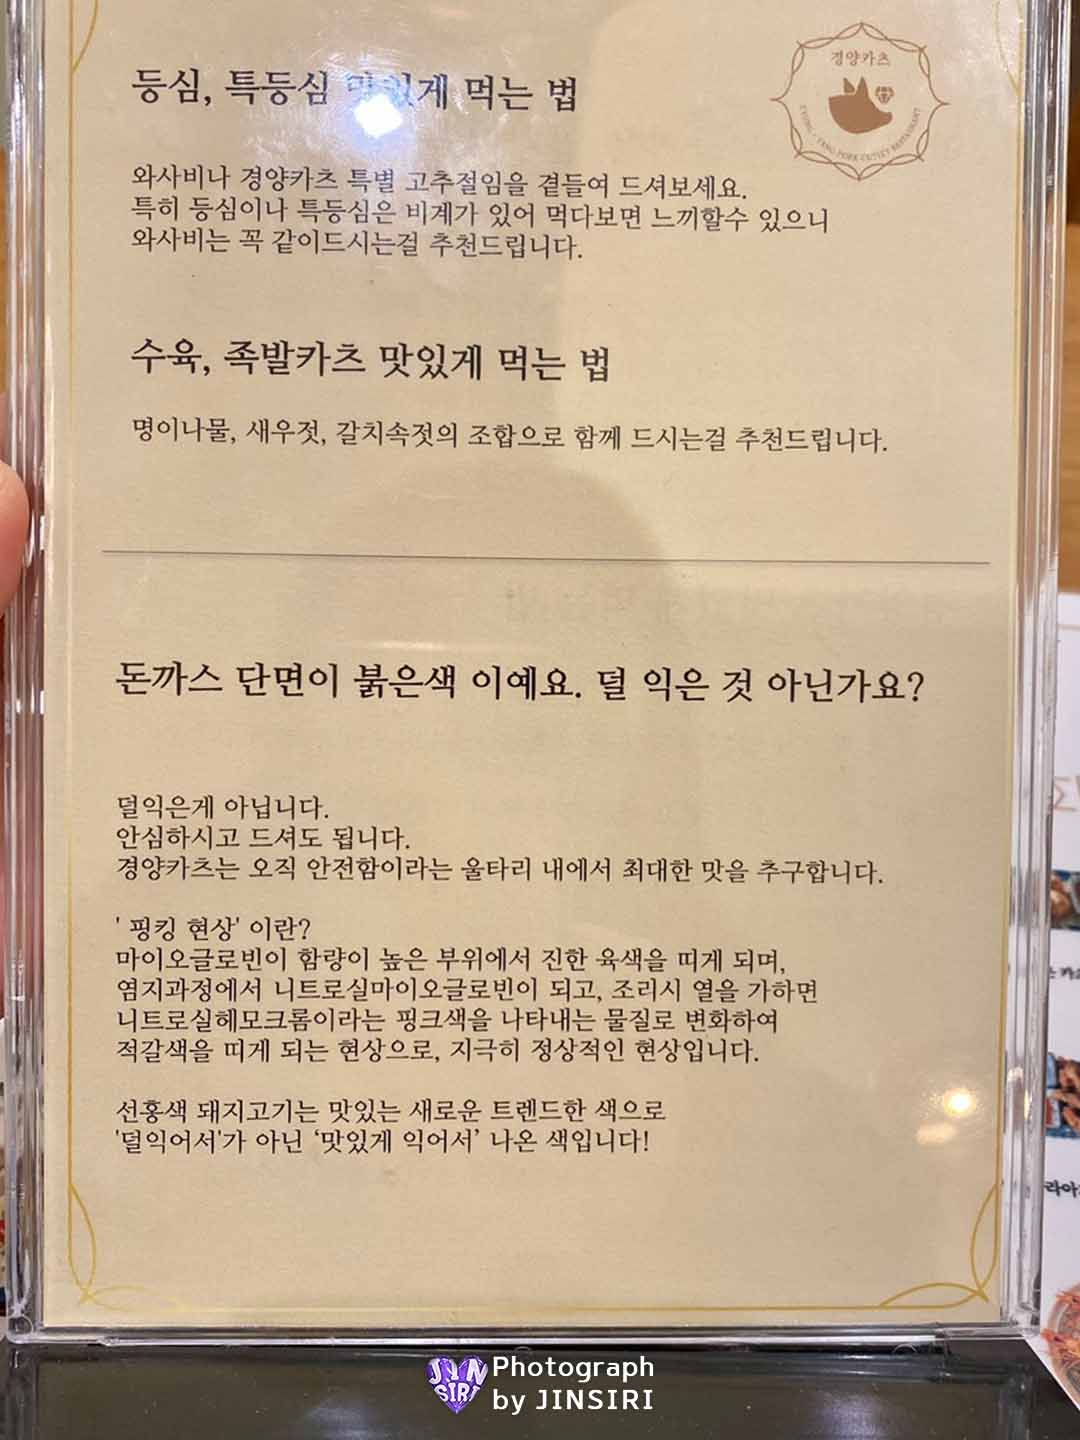 경양카츠
등심, 특등심 맛있게 먹는 법
와사비나 경양카츠 특별 고추절임을 곁들여 드셔보세요.
특히 등심이나 특등심은 비계가 있어 먹다보면 느끼할수 있으니
와사비는 꼭 같이드시는걸 추천드립니다.
수육, 족발카츠 맛있게 먹는 법
명이나물, 새우젓, 갈치속젓의 조합으로 함께 드시는걸 추천드립니다.
돈까스 단면이 붉은색 이예요. 덜 익은 것 아닌가요?
덜익은게 아닙니다.
안심하시고 드셔도 됩니다.
경양카츠는 오직 안전함이라는 울타리 내에서 최대한 맛을 추구합니다.
' 핑킹 현상' 이란?
마이오글로빈이 함량이 높은 부위에서 진한 육색을 띠게 되며,
염지과정에서 니트로실마이오글로빈이 되고, 조리시 열을 가하면
니트로실헤모크롬이라는 핑크색을 나타내는 물질로 변화하여
적갈색을 띠게 되는 현상으로, 지극히 정상적인 현상입니다.
선홍색 돼지고기는 맛있는 새로운 트렌드한 색으로
'덜익어서'가 아닌 ‘맛있게 익어서’ 나온 색입니다!
JIN
SIRI
Photograph
by JINSIRI